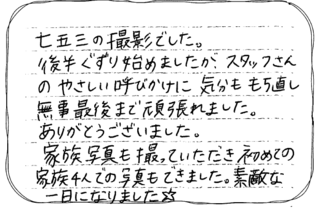 七五三の撮影でした。
後半ぐずり始めましたが、スタッフさん
のやさしい呼びかけに気分ももち直し
無事最後まで頑張れました。
ありがとうございました。
家族写真も撮っていただき初めての
家族4人での写真もできました。素敵な
一日になりました☆